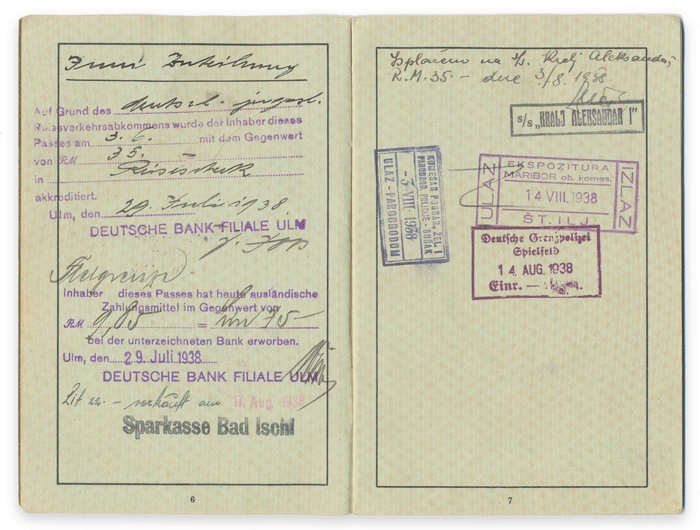 Juni Zuteilung
Auf Grund des deutsch-jugosl.
Reiseverkehrsabkommens wurde der Inhaber dieses
Passes am mit dem Gegenwert
von RM 35.–
in Reisescheck
akkreditiert.
Ulm, den 29 Juli 1938.
DEUTSCHE BANK FILIALE ULM
Inhaber dieses Passes hat heute ausländische
Zahlungsmittel im Gegenwert von
RM =
bei der unterzeichneten Bank erworben.
Ulm, den 29 Juli 1938
DEUTSCHE BANK FILIALE ULM
Lit 22.– verkauft am 17. Aug. 1938
Sparkasse Bad Ischl
6
Isplaćeno na s/s. Kralj Aleksandar
R.M. 35.– dne 3/8. 1938.
s/s „KRALJ ALEKSANDAR I"
KOMESAR POGRAN. ŽEL. I
PAROBROD. POLICIJE - SUŠAK
-3.VIII.1938
ULAZ - PAROBRODOM
ULAZ
EKSPOZITURA
MARIBOR ob. komes.
14 VIII. 1938
ŠT. ILJ.
IZLAZ
Deutsche Grenzpolizei
Spielfeld
14 AUG. 1938
Einr. —
7